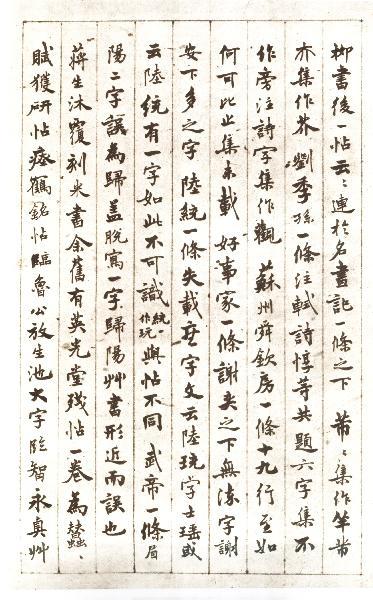 柳書後一帖云〻連於名畫記一條之下 芾〻集作竿芾
亦集作芥 劉季孫一條注軾詩惇等共題六字集不
作旁注詩字集作觀 蘇州舜欽房一條十九行至如
何可比止集未載 好事家一條謝夫之下無湊字謝
安下多之字 陸統一條失載度字文云陸玩學士瑶或
云陸統有一字如此不可識統一作玩與帖不同 武帝一條眉
陽二字誤為歸蓋脫寫一字歸陽艸書形近而誤也
蔣生沐覆刻米書余舊有英光堂殘帖一卷為蠶〻
賦獲研帖瘞鶴銘帖臨魯公放生池大字臨智永真艸